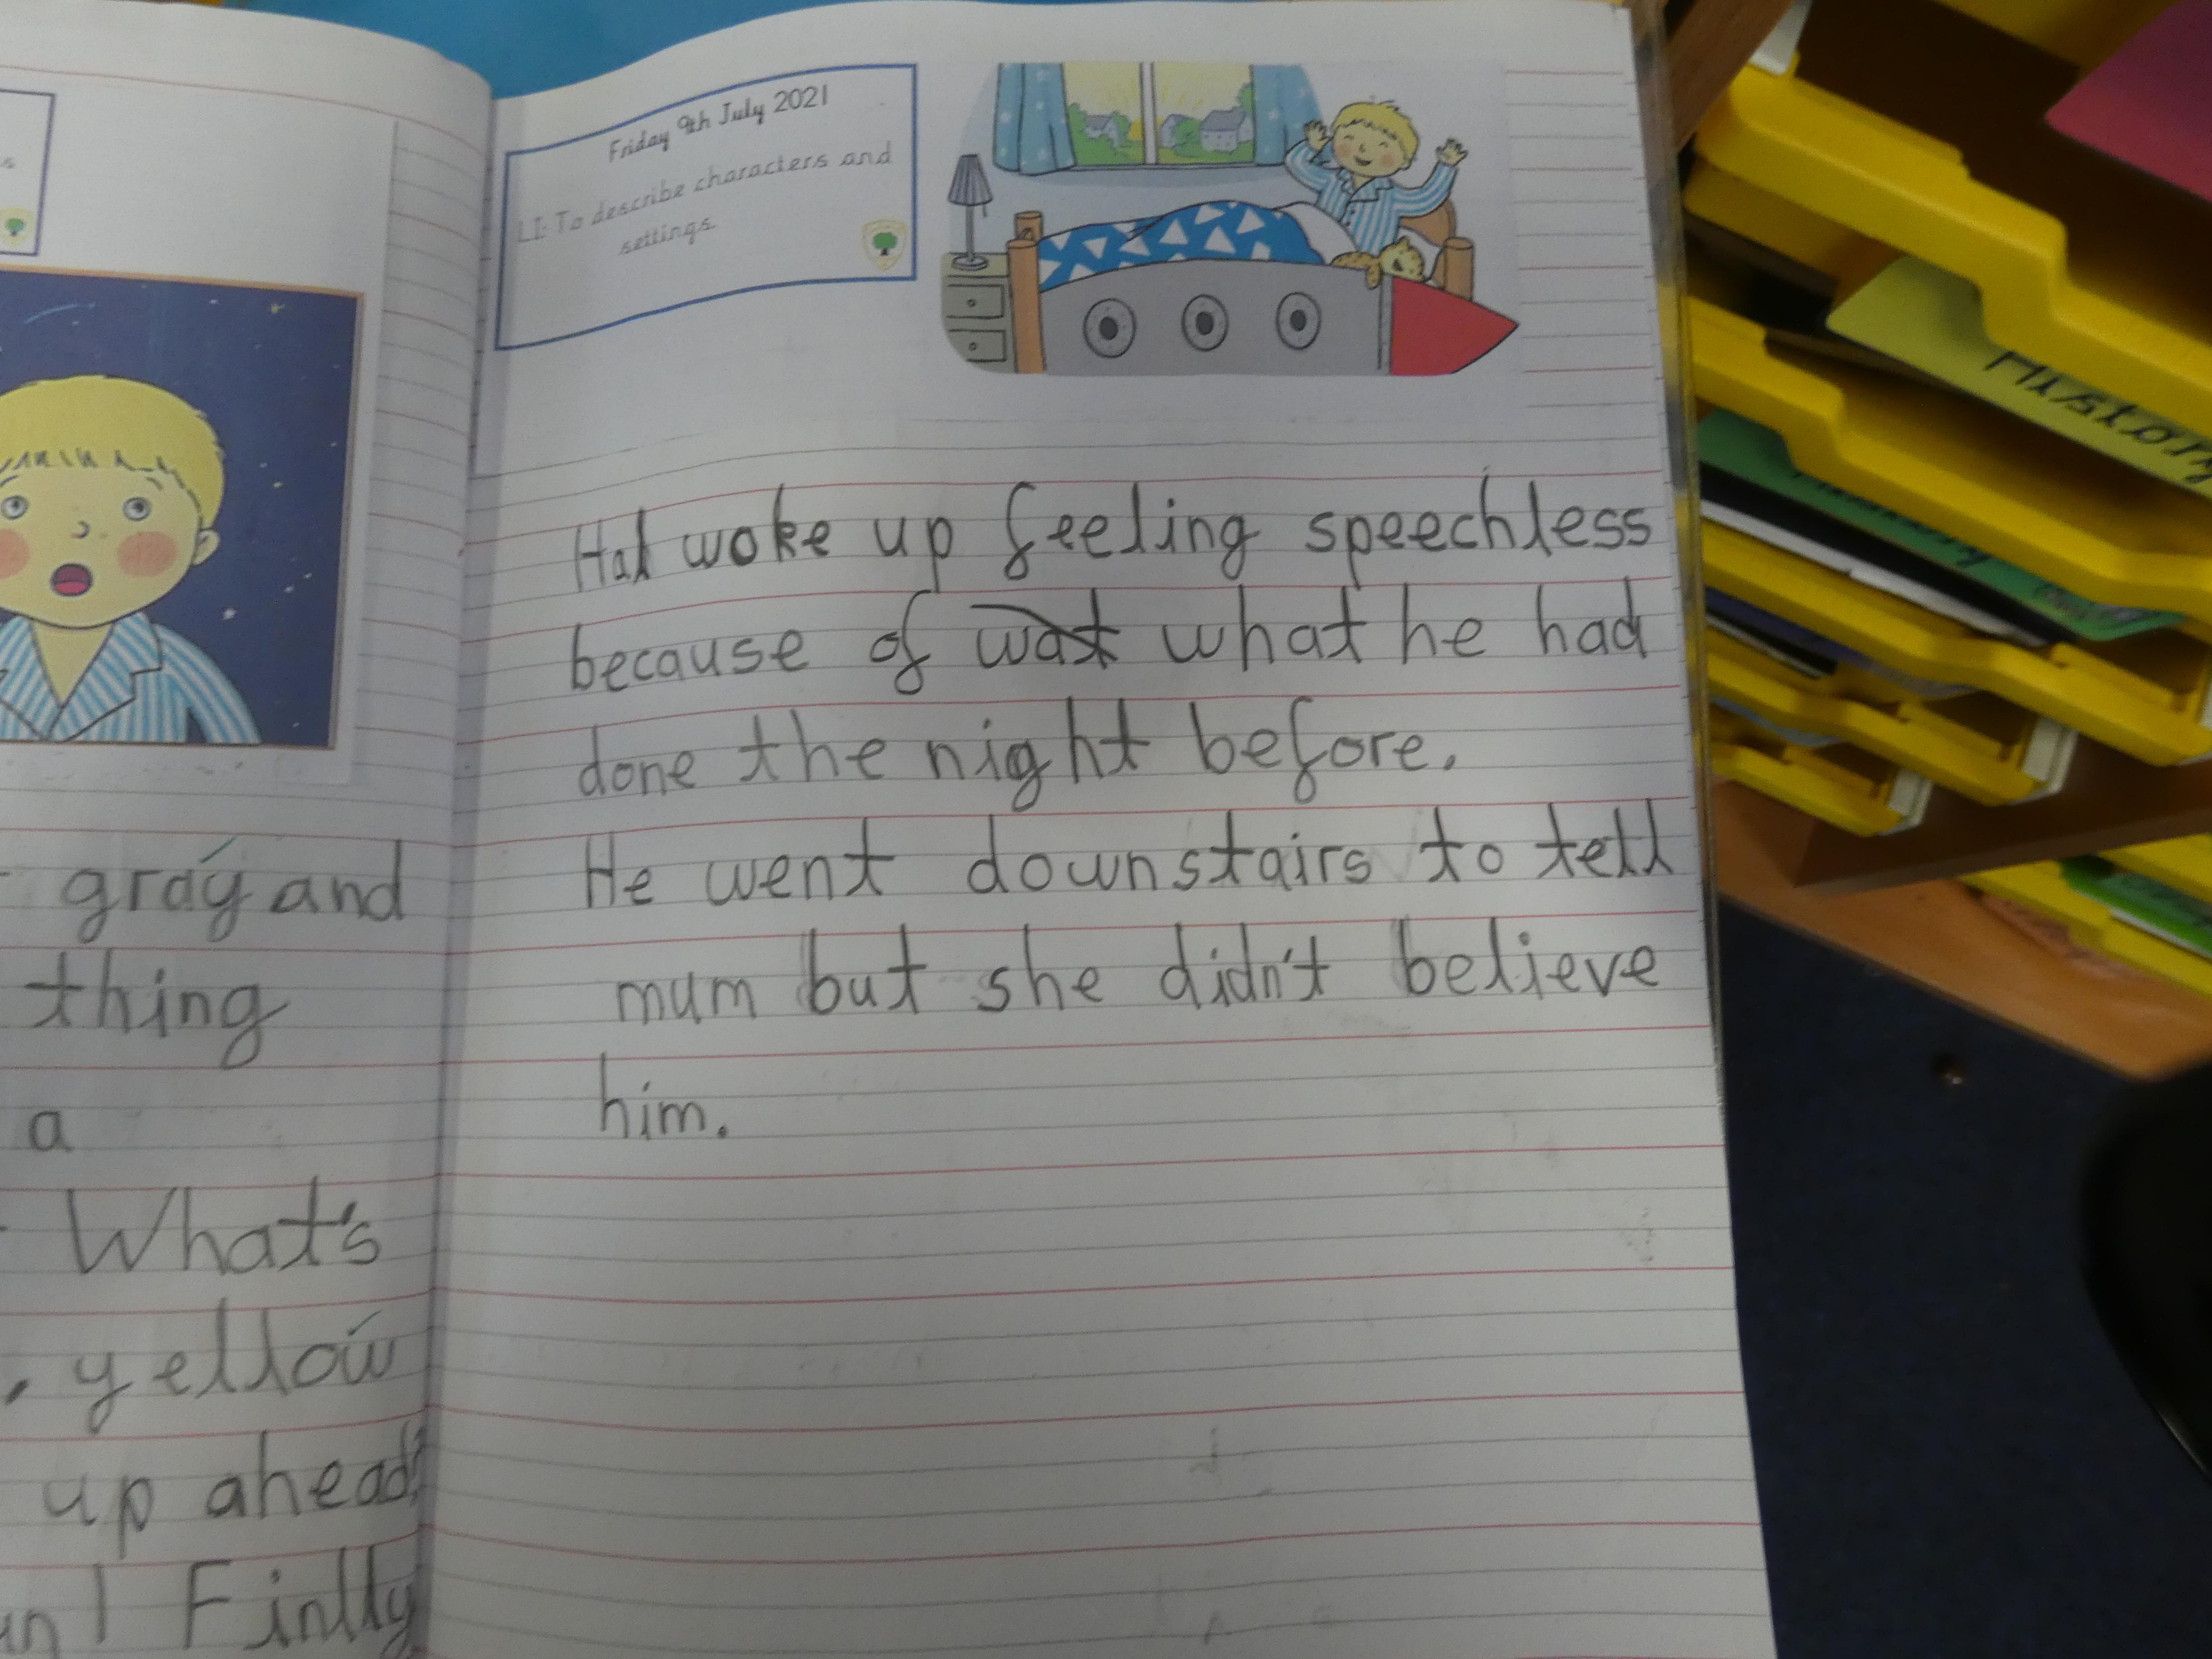 gray and
thing
a
What's
yellow
up ahead?
Finlly
Friday 9th July 2021
LI: To describe characters and
settings.
Hal woke up feeling speechless
because of wat what he had
done the night before.
He went downstairs to tell
mum but she didn't believe
him.
History